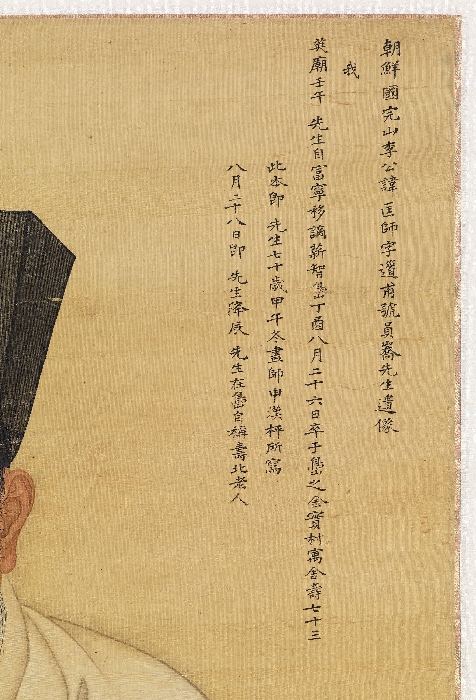 朝鮮國完山李公諱匡師字道甫號員嶠先生遺像
我
英廟壬午 先生自富寧移謫薪智島丁酉八月二十六日卒于島之金實村寓舍壽七十三
此本即 先生七十歲甲午冬畫師申漢枰所寫
八月二十八日即 先生降辰 先生在島自稱壽北老人